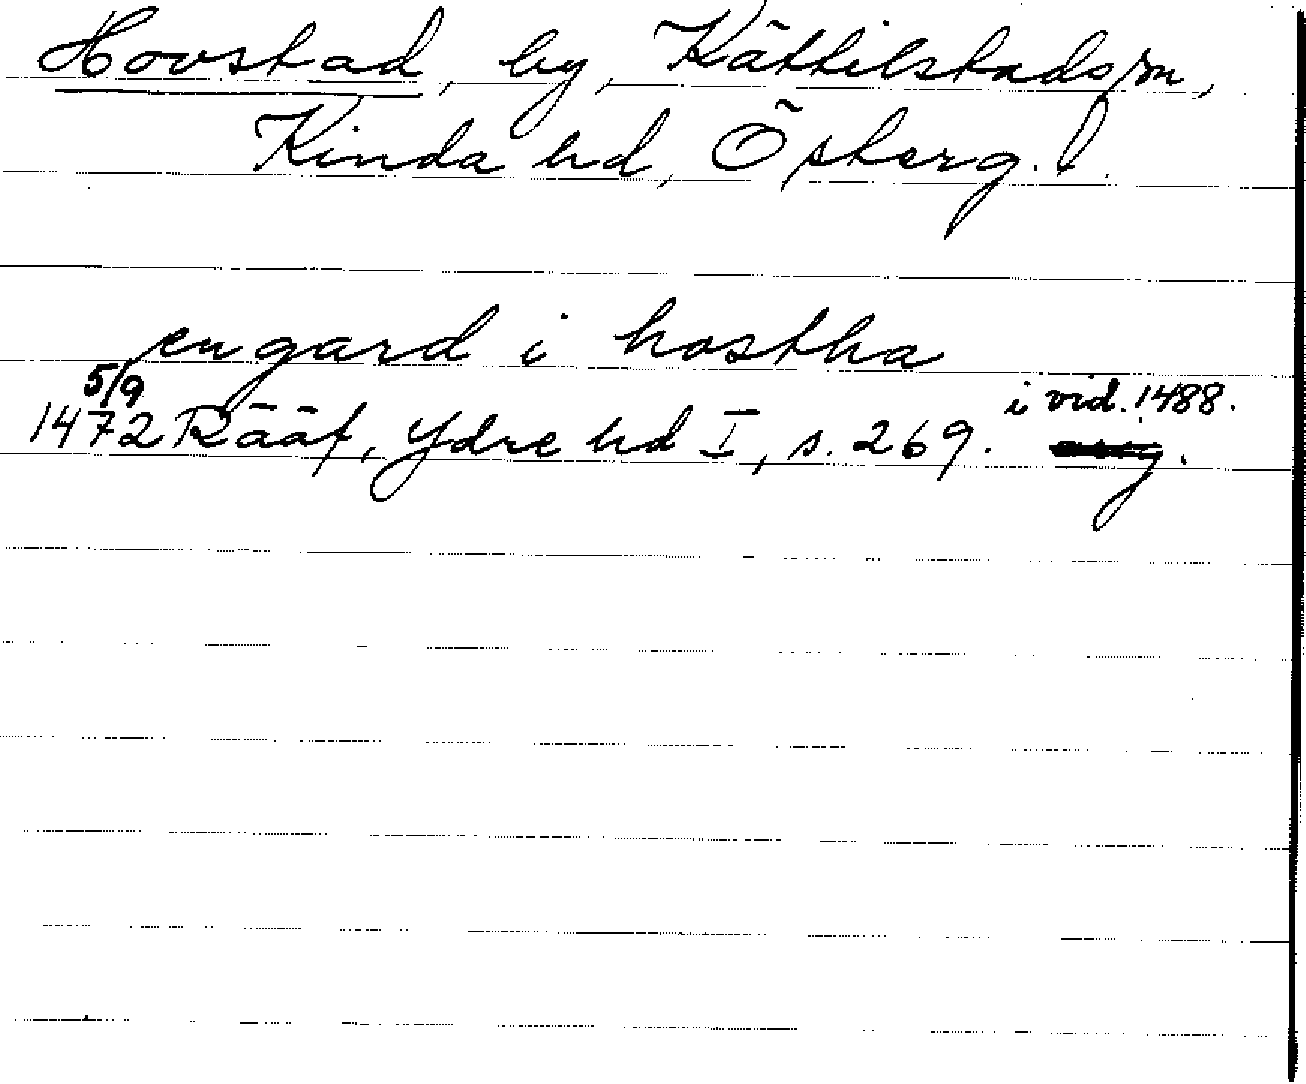 Hovstad, by, Kättilstads sn,
Kinda hd, Österg.
en gard i hostha
5/9
1472 Rääf, Ydre hd I, s. 269. i vid. 1488.